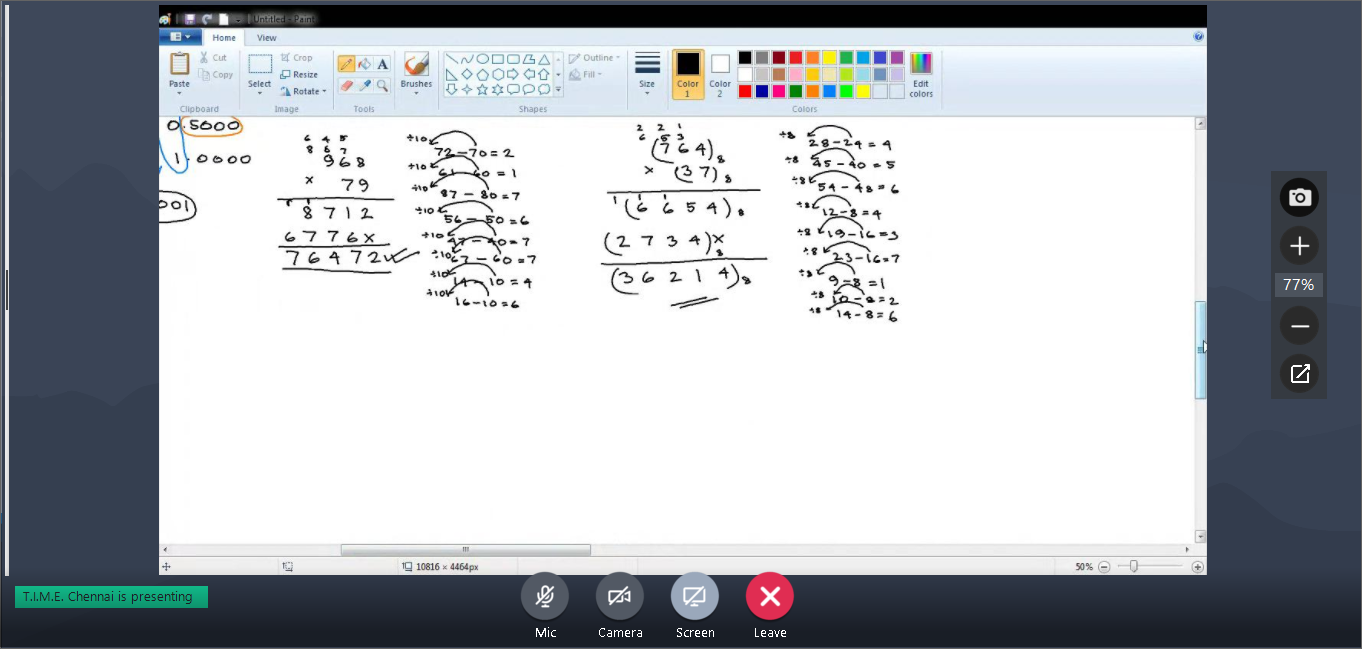 Untitled - Paint
Home
View
Paste
Cut
Copy
Clipboard
Select
Crop
Resize
Rotate
Image
Tools
Brushes
Shapes
Outline
Fill
Size
Color 1
Color 2
Colors
Edit colors
0.5000
1.0000
001)
6 4 5
8 6 7
968
× 79
8712
6776×
76472
÷10 72-70=2
÷10 61-60=1
÷10 87-80=7
÷10 56-50=6
÷10 47-40=7
÷10 67-60=7
÷10 14-10=4
÷10 16-10=6
2 2 1
6 5 3
(764)8
× (37)8
1 (6654)8
(2734)8×
(36214)8
÷8 28-24=4
÷8 45-40=5
÷8 54-48=6
÷8 12-8=4
÷8 19-16=3
÷8 23-16=7
÷8 9-8=1
÷8 10-8=2
÷8 14-8=6
10816 × 4464px
50%
77%
T.I.M.E. Chennai is presenting
Mic
Camera
Screen
Leave